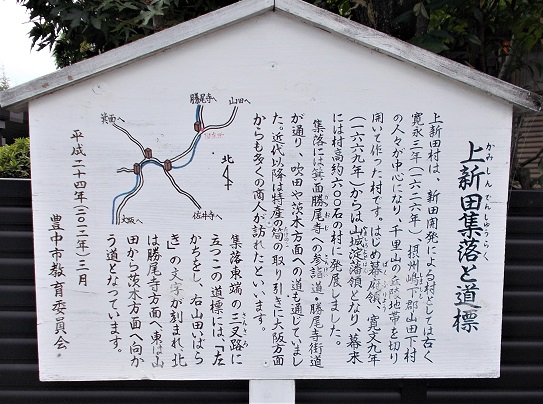 上新田集落と道標
かみしんでんしゅうらく
上新田村は、新田開発による村としては古く
寛永三年（一六二六年）摂州嶋下郡山田下村
の人々が中心になり、千里山の丘陵地帯を切り
開いて作った村です。はじめ幕府領、寛文九年
（一六六九年）からは山城淀藩領となり、幕末
には村高約六〇〇石の村に発展しました。
集落には箕面勝尾寺への参詣道・勝尾寺街道
が通り、吹田や茨木方面への道も通じていまし
た。近代以降は特産の筍の取り引きに大阪方面
からも多くの商人が訪れたといいます。
集落東端の三叉路に
立つこの道標には「左
かちをし、右山田いばら
き」の文字が刻まれ、北
は勝尾寺方面へ、東は山
田から茨木方面へ向か
う道となっています。
平成二十四年（二〇一二年）三月
豊中市教育委員会
箕面へ
勝尾寺へ
山田へ
北
大阪へ
佐井寺へ